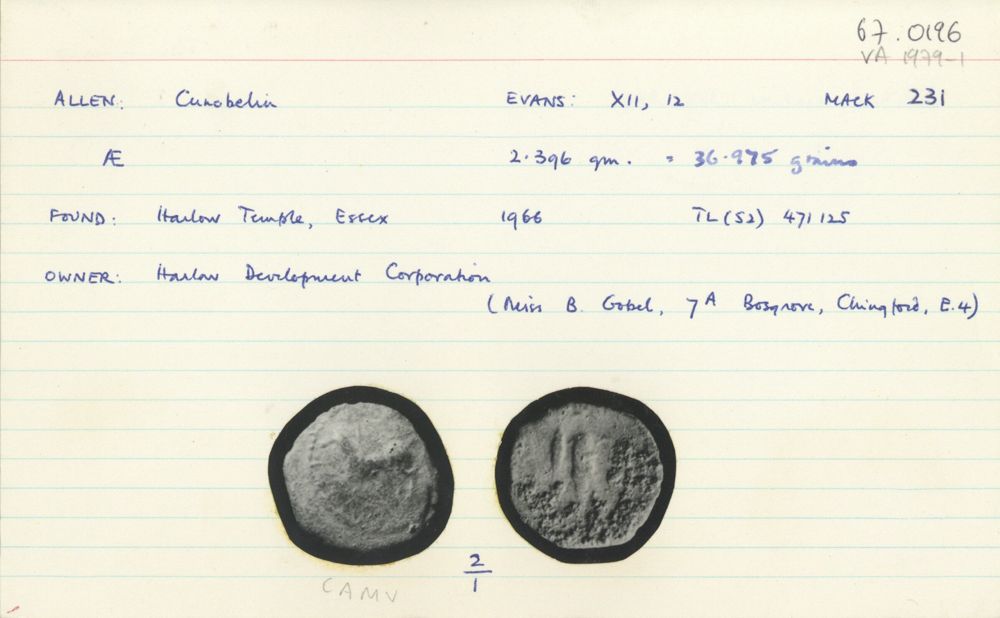 67.0196
VA 1979-1
ALLEN: Cunobelin EVANS: XII, 12 MACK 231
Æ 2.396 gm. = 36.975 grains
FOUND: Harlow Temple, Essex 1966 TL (52) 471125
OWNER: Harlow Development Corporation
(Miss B. Gobel, 7A Bosgrove, Chingford, E.4)
2
1
CAMV